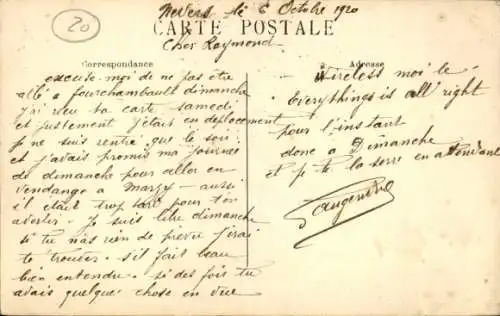 20
Nevers le 6 Octobre 1920
CARTE POSTALE
Cher Raymond
Correspondance
Adresse
excuse-moi de ne pas être
allé à fourchambault dimanche
j'ai reçu ta carte samedi
et justement j'étais en déplacement
je ne suis rentré que le soir
et j'avais promis ma journée
de dimanche pour aller en
vendange à Marzy - aussi
il était trop tard pour t'en
avertir. Je suis libre dimanche
si tu n'as rien de prévu j'irai
te trouver. s'il fait beau
bien entendu. si des fois tu
avais quelque chose en vue
Wireless moi le
Everythings is all right
pour l'instant
donc à Dimanche
et je te la serre en attendant